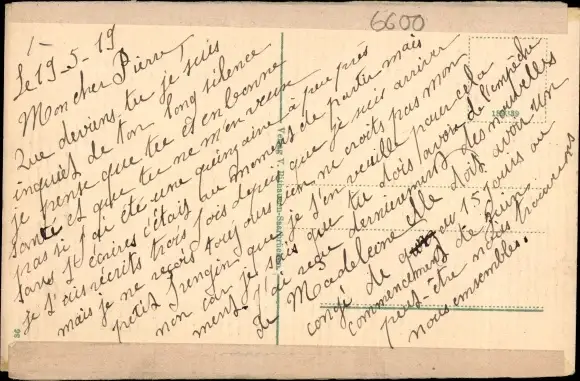 6600
1-
Le 19-5-19
Mon cher Pierre,
Que deviens tu je suis
inquiet de ton long silence
je pense que tu es en bonne
santé et que tu ne m'en veux
pas si j'ai été une quinzaine à peu près
sans t'écrires c'était au moment de partir mais
je t'ais récrits trois fois depuis que je suis arriver
mais je ne reçois toujours rien ne crois pas mon
petit frengin que je t'en veuille pour cela
non car je sais que tu dois avoir de l'empêche
ment. J'ai reçu dernièrement des nouvelles
de Madeleine elle doit avoir un
congé de 10 ou 15 jours au
commencement de juin
peut-être nous trouverons
nous ensembles.
36